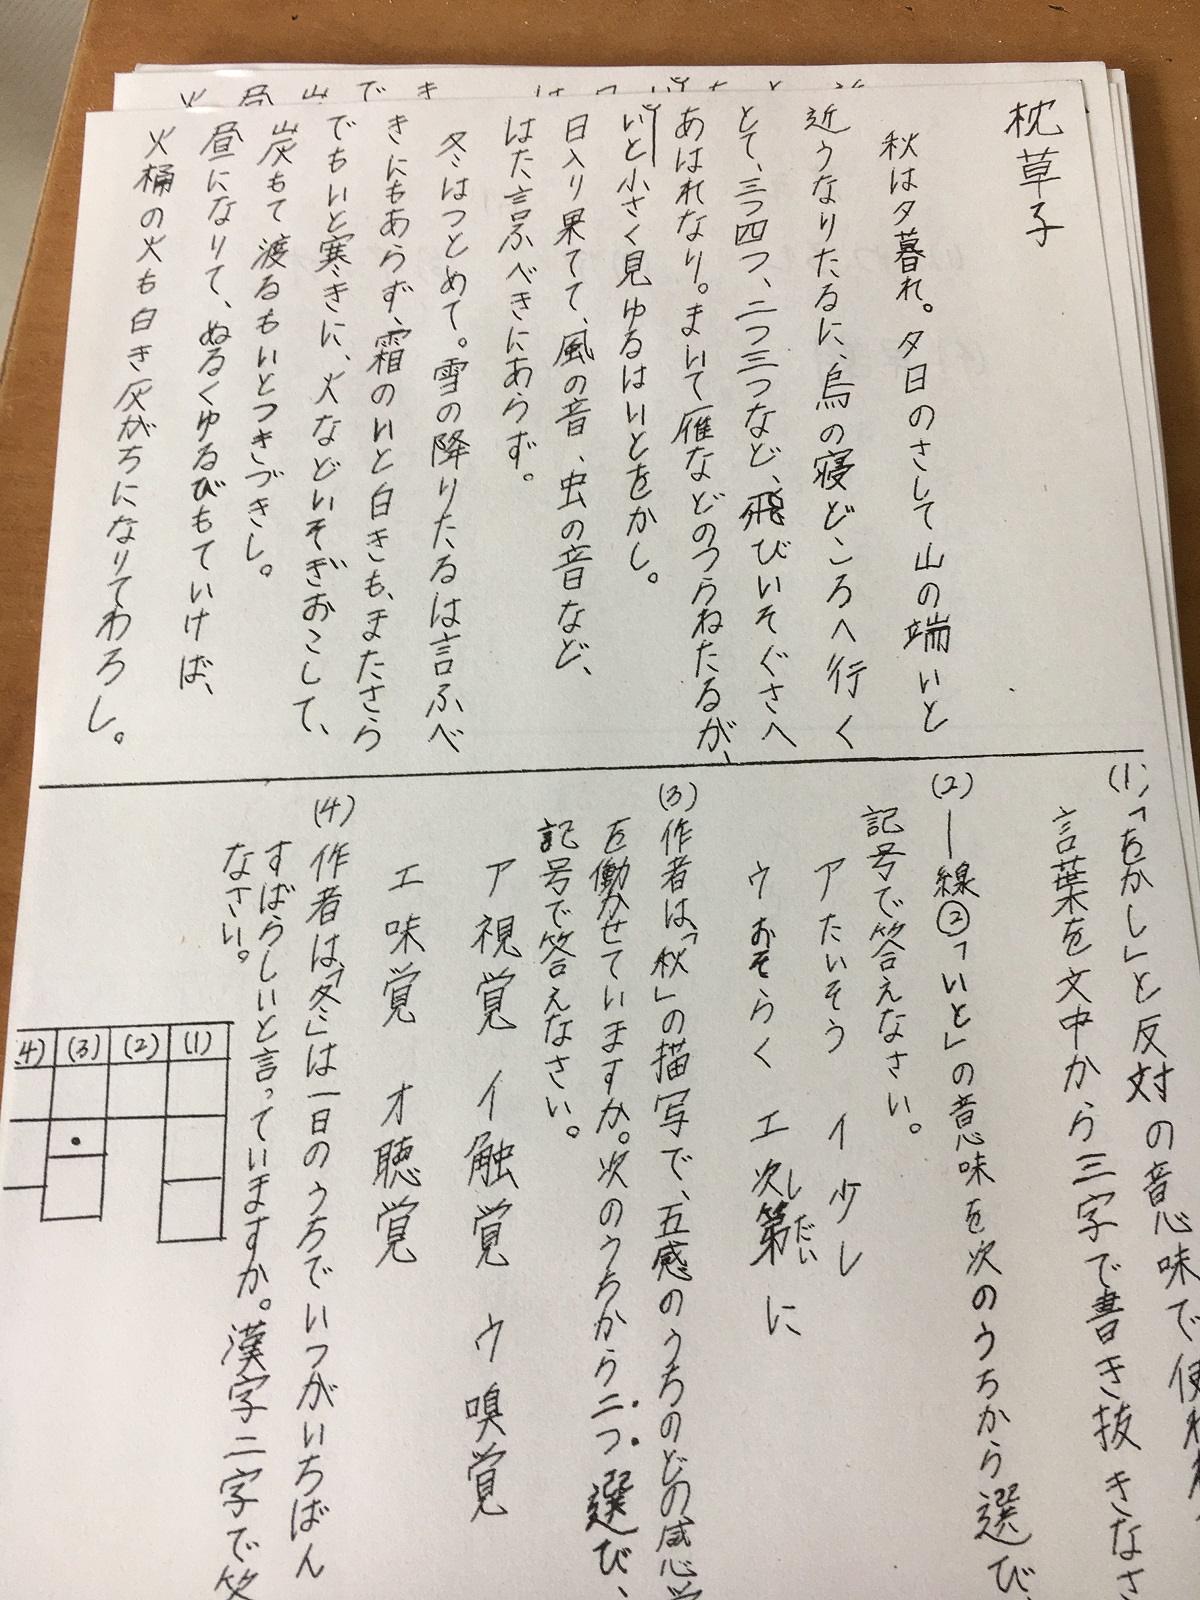 枕草子
秋は夕暮れ。夕日のさして山の端いと
近うなりたるに、烏の寝どころへ行く
とて、三つ四つ、二つ三つなど、飛びいそぐさへ
あはれなり。まいて雁などのつらねたるが、
いと小さく見ゆるはいとをかし。
日入り果てて、風の音、虫の音など、
はた言ふべきにあらず。
冬はつとめて。雪の降りたるは言ふべ
きにもあらず、霜のいと白きも、またさら
でもいと寒きに、火などいそぎおこして、
炭もて渡るもいとつきづきし。
昼になりて、ぬるくゆるびもていけば、
火桶の火も白き灰がちになりてわろし。
(1)「をかし」と反対の意味で使
言葉を文中から三字で書き抜きなさ
(2)―線②「いと」の意味を次のうちから選び、
記号で答えなさい。
ア たいそう イ 少し
ウ おそらく エ 次第に
しだい
(3)作者は、「秋」の描写で、五感のうちのどの感
を働かせていますか。次のうちから二つ選び、
記号で答えなさい。
ア 視覚 イ 触覚 ウ 嗅覚
エ 味覚 オ 聴覚
(4)作者は、「冬」は一日のうちでいつがいちばん
すばらしいと言っていますか。漢字二字で
なさい。
(1)
(2)
(3)
・
4)